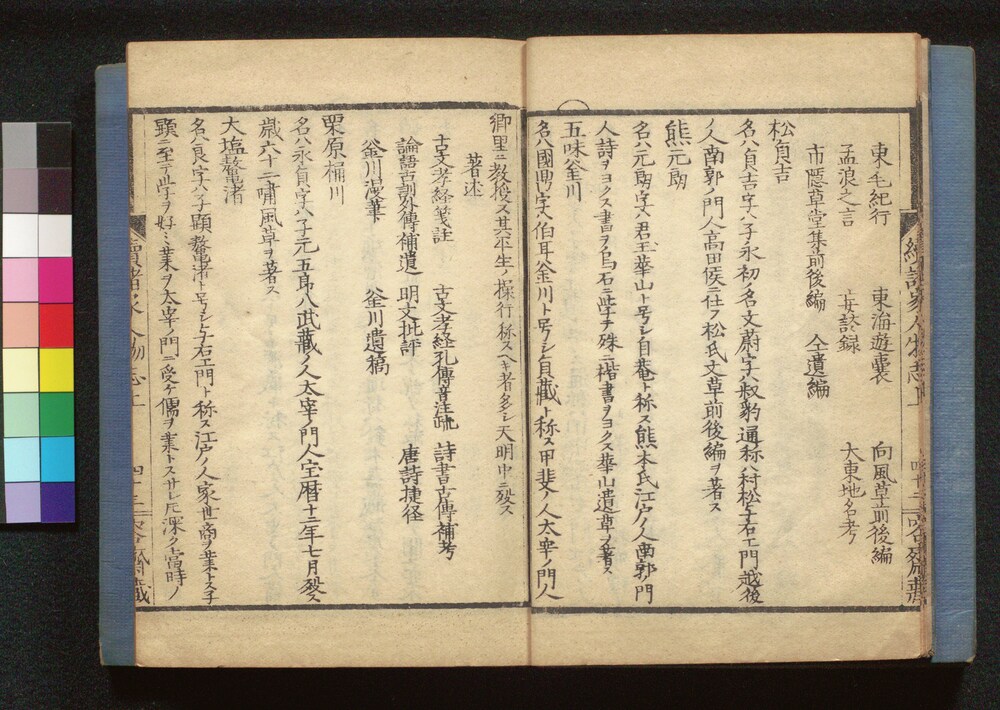 東毛紀行　東海遊嚢　向風草前後編
孟浪之言　　大東地名考
市隠草堂集前後編　仝遺編
松貞吉
名ハ貞吉字ハ子永初ノ名文蔚字ハ叔豹通称ハ村松 右エ門越後
ノ人南郭ノ門人高田侯ニ仕フ松氏文草前後編ヲ著ス
熊元朗
名ハ元朗字ハ君玉華山ト号シ自菴ト称ス熊本氏江戸ノ人南郭ノ門
人詩ヲヨクス書ヲ烏石ニ学テ殊ニ楷書ヲヨクス華山遺草ヲ著ス
五味釜川
名ハ國鼎字ハ伯耳釜川ト号シ貞蔵ト称ス甲斐ノ人太宰ノ門人
郷里ニ教授ス其平生ノ操行称スヘキ者多シ天明中ニ殁ス
著述
古文孝経箋註　古文孝経孔傳音注疏　詩書古傳補考
論語古訓外傳補遺　明文批評　唐詩捷径
釜川漫筆　釜川遺稿
栗原桶川
名ハ永貞字ハ子元五郎八武蔵ノ人太宰ノ門人宝暦十二年七月殁ス
歳六十二嘯風草ヲ著ス
大塩鼇渚
名ハ良字ハ子顕鼇渚ト号シ 右エ門ト称ス江戸ノ人家世商ヲ業トス子
顕ニ至テ学ヲ好ミ業ヲ太宰ノ門ニ受ケ儒ヲ業トスサレ𪜈深ク當時ノ
續諸家人物志上